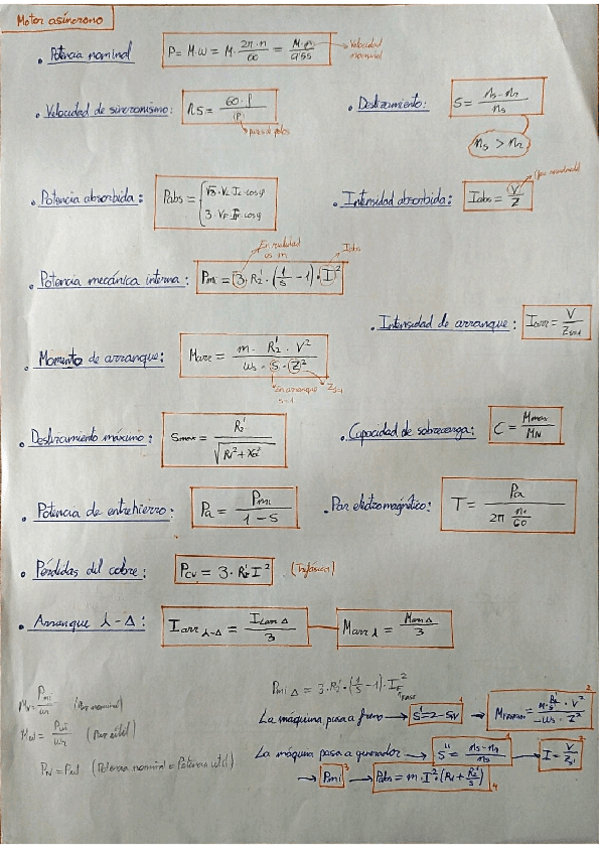 Motor asíncrono
• Potencia nominal P = M·ω = M· 2π·n / 60 = M·n / 9'55 → Velocidad nominal
• Velocidad de sincronismo: ns = 60·f / (P) → pares de polos
• Deslizamiento: S = ns - n2 / ns
ns > n2
• Potencia absorbida: Pabs = { √3·VL·IL·cosφ
3·VF·IF·cosφ
• Intensidad absorbida: Iabs = V / Z
• Potencia mecánica interna: Pmi = 3·R2'·(1/s - 1)·I²
En realidad es m
Iabs
• Intensidad de arranque: Iarr = V / Zs=1
• Momento de arranque: Marr = m · R2' · V² / ωs · S · Z²
En arranque s=1
Zs=1
• Deslizamiento máximo: Smax = R2' / √(R1² + Xcc²)
• Capacidad de sobrecarga: C = Mmax / MN
• Potencia de entrehierro: Pa = Pmi / 1 - S
• Par electromagnético: T = Pa / 2π ns/60
• Pérdidas del cobre: PCU = 3·R2' I² (Trifásica)
• Arranque λ-Δ: Iarr λ-Δ = Iarr Δ / 3 Marr λ = Marr Δ / 3
Pmi Δ = 3·R2'·(1/s - 1)·IF² FASE
(Par nominal)
(Par útil)
PN = Put (Potencia nominal = Potencia util)
La máquina pasa a freno → S' = 2 - SN →
La máquina pasa a generador → S'' = ns - n2 / ns → I = V / Zs'
→ Pmi → Pabs = m·I²·(R1 + R2'/s)